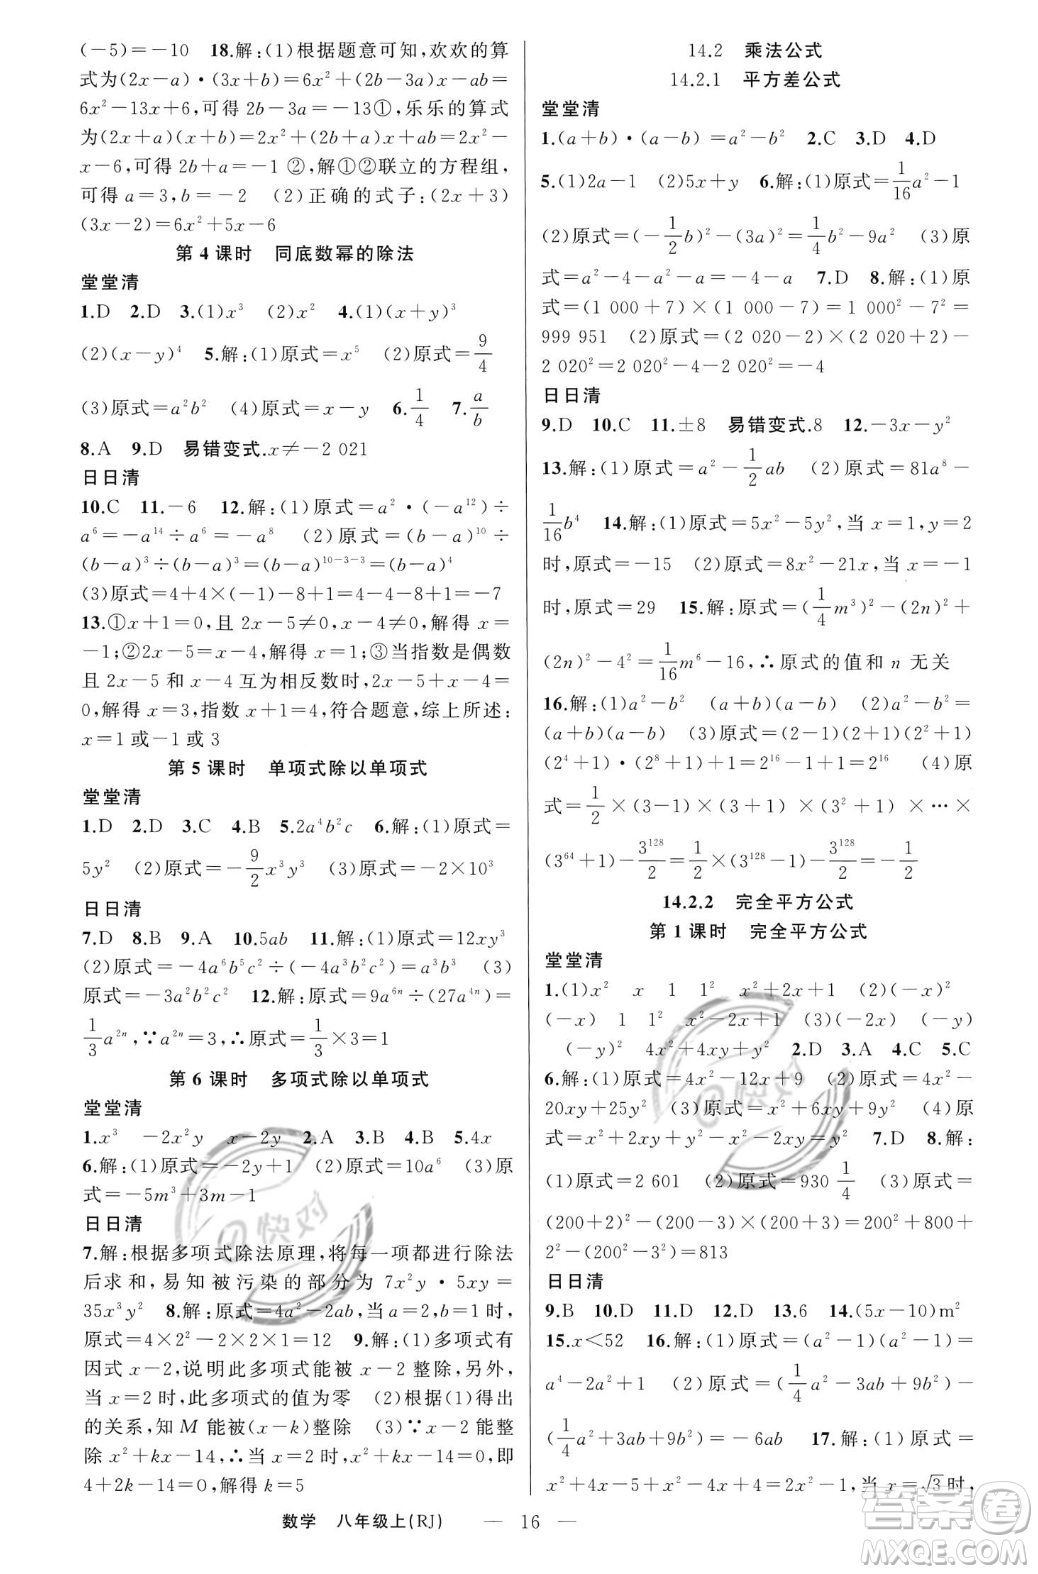 (－5)＝－10　18.解:(1)根据题意可知,欢欢的算
式为(2x－a)·(3x＋b)＝6x²＋(2b－3a)x－ab＝
6x²－13x＋6,可得 2b－3a＝－13①,乐乐的算式
为(2x＋a)(x＋b)＝2x²＋(2b＋a)x＋ab＝2x²－
x－6,可得 2b＋a＝－1 ②,解①②联立的方程组,
可得 a＝3,b＝－2　(2)正确的式子:(2x＋3)
(3x－2)＝6x²＋5x－6
第 4 课时　同底数幂的除法
堂堂清
1.D　2.D　3.(1)x³　(2)x²　4.(1)(x＋y)³
(2)(x－y)⁴　5.解:(1)原式＝x⁵　(2)原式＝9/4
(3)原式＝a²b²　(4)原式＝x－y　6.1/4　7.a/b
8.A　9.D　易错变式.x≠－2 021
日日清
10.C　11.－6　12.解:(1)原式＝a²·(－a¹²)÷
a⁶＝－a¹⁴÷a⁶＝－a⁸　(2)原式＝(b－a)¹⁰÷
(b－a)³÷(b－a)³＝(b－a)¹⁰⁻³⁻³＝(b－a)⁴
(3)原式＝4＋4×(－1)－8＋1＝4－4－8＋1＝－7
13.①x＋1＝0,且 2x－5≠0,x－4≠0,解得 x＝
－1;②2x－5＝x－4,解得 x＝1;③当指数是偶数
且 2x－5 和 x－4 互为相反数时,2x－5＋x－4＝
0,解得 x＝3,指数 x＋1＝4,符合题意,综上所述:
x＝1 或－1 或 3
第 5 课时　单项式除以单项式
堂堂清
1.D　2.D　3.C　4.B　5.2a⁴b²c　6.解:(1)原式＝
5y²　(2)原式＝－9/2x³y³　(3)原式＝－2×10³
日日清
7.D　8.B　9.A　10.5ab　11.解:(1)原式＝12xy³
(2)原式＝－4a⁶b⁵c²÷(－4a³b²c²)＝a³b³　(3)
原式＝－3a²b²c²　12.解:原式＝9a⁶ⁿ÷(27a⁴ⁿ)＝
1/3a²ⁿ,∵a²ⁿ＝3,∴原式＝1/3×3＝1
第 6 课时　多项式除以单项式
堂堂清
1.x³　－2x²y　x－2y　2.A　3.B　4.B　5.4x
6.解:(1)原式＝－2y＋1　(2)原式＝10a⁶　(3)原
式＝－5m³＋3m－1
日日清
7.解:根据多项式除法原理,将每一项都进行除法
后求和,易知被污染的部分为 7x²y·5xy＝
35x³y²　8.解:原式＝4a²－2ab,当 a＝2,b＝1时,
原式＝4×4－2×2×1＝12　9.解:(1)多项式有
因式 x－2,说明此多项式能被 x－2 整除,另外,
当 x＝2 时,此多项式的值为零　(2)根据(1)得出
的关系,知 M 能被(x－k)整除　(3)∵x－2 能整
除 x²＋kx－14,∴当 x＝2 时,x²＋kx－14＝0,即
4＋2k－14＝0,解得 k＝5
14.2　乘法公式
14.2.1　平方差公式
堂堂清
1.(a＋b)·(a－b)＝a²－b²　2.C　3.D　4.D
5.(1)2a－1　(2)5x＋y　6.解:(1)原式＝1/16a²－1
(2)原式＝(－1/2b)²－(3a)²＝1/4b²－9a²　(3)原
式＝a²－4－a²－a＝－4－a　7.D　8.解:(1)原
式＝(1 000＋7)×(1 000－7)＝1 000²－7²＝
999 951　(2)原式＝(2 020－2)×(2 020＋2)－
2 020²＝2 020²－4－2 020²＝－4
日日清
9.D　10.C　11.±8　易错变式.8　12.－3x－y²
13.解:(1)原式＝a²－1/2ab　(2)原式＝81a⁸－
1/16b⁴　14.解:(1)原式＝5x²－5y²,当 x＝1,y＝2
时,原式＝－15　(2)原式＝8x²－21x,当 x＝－1
时,原式＝29　15.解:原式＝(1/4m³)²－(2n)²＋
(2n)²－4²＝1/16m⁶－16,∴原式的值和 n 无关
16.解:(1)a²－b²　(a＋b)(a－b)　(2)a²－b²＝
(a＋b)(a－b)　(3)原式＝(2－1)(2＋1)(2²＋1)
(2⁴＋1)·(2⁸＋1)＋1＝2¹⁶－1＋1＝2¹⁶　(4)原
式＝1/2×(3－1)×(3＋1)×(3²＋1)×…×
(3⁶⁴＋1)－3¹²⁸/2＝1/2×(3¹²⁸－1)－3¹²⁸/2＝－1/2
14.2.2　完全平方公式
第 1 课时　完全平方公式
堂堂清
1.(1)x²　x　1　1²　x²＋2x＋1　(2)(－x)²
(－x)　1　1²　x²－2x＋1　(3)(－2x)　(－y)
(－y)²　4x²＋4xy＋y²　2.D　3.A　4.C　5.C
6.解:(1)原式＝4x²－12x＋9　(2)原式＝4x²－
20xy＋25y²　(3)原式＝x²＋6xy＋9y²　(4)原
式＝x²＋2xy＋y²－x²＋2xy－y²＝4xy　7.D　8.解:
(1)原式＝2 601　(2)原式＝930 1/4　(3)原式＝
(200＋2)²－(200－3)×(200＋3)＝200²＋800＋
2²－(200²－3²)＝813
日日清
9.B　10.D　11.D　12.D　13.6　14.(5x－10)m²
15.x＜52　16.解:(1)原式＝(a²－1)(a²－1)＝
a⁴－2a²＋1　(2)原式＝(1/4a²－3ab＋9b²)－
(1/4a²＋3ab＋9b²)＝－6ab　17.解:(1)原式＝
x²＋4x＋5－2x²－4x＋4＋2x²－1,当 x＝√3时,
数学　八年级上(RJ)　— 16 —
快对
快对
答案圈
MXQE.COM